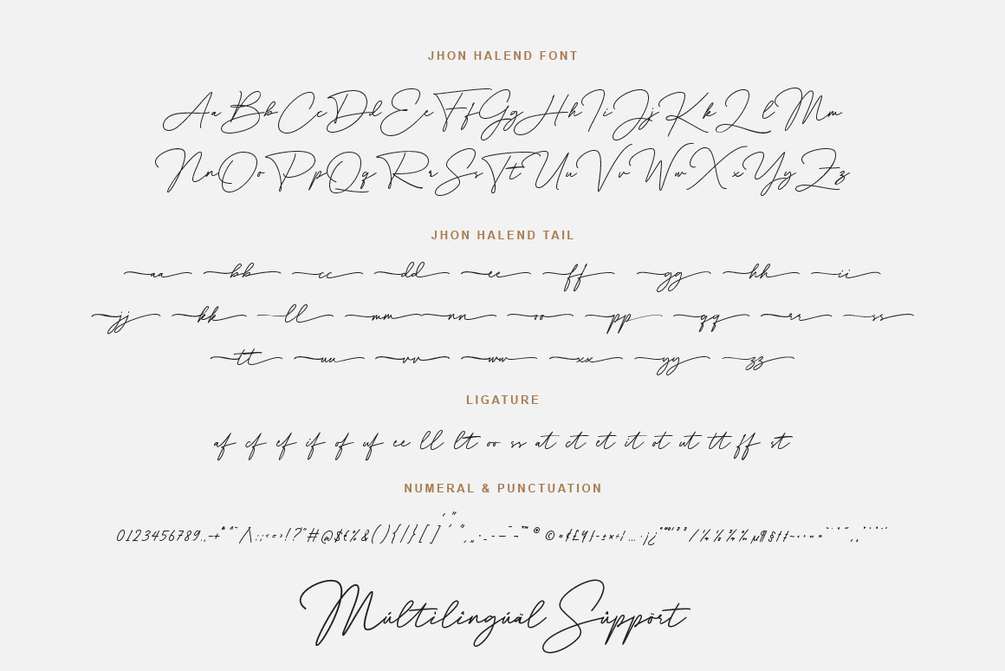 JHON HALEND FONT
Aa Bb Cc Dd Ee Ff Gg Hh Ii Jj Kk Ll Mm
Nn Oo Pp Qq Rr Ss Tt Uu Vv Ww Xx Yy Zz
JHON HALEND TAIL
aa bb cc dd ee ff gg hh ii
jj kk ll mm nn oo pp qq rr ss
tt uu vv ww xx yy zz
LIGATURE
af cf ef if of uf ee ll lt oo ss at ct et it ot ut tt ff st
NUMERAL & PUNCTUATION
0123456789
Múltilingúäl Sûppört